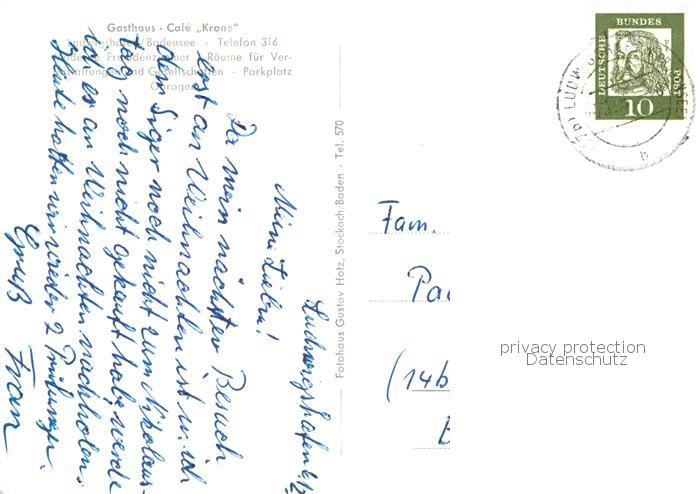 Gasthaus - Café „Krone"
Ludwigshafen/Bodensee · Telefon 316
Moderne Fremdenzimmer · Räume für Ver-
anstaltungen und Gesellschaften · Parkplatz
Garagen
Ludwigshafen 6.12
Meine Lieben!
Da mein nächster Besuch
erst an Weihnachten ist u. ich
den noch nicht zum Nikolaus-
tag noch nicht gekauft habe, werde
ich es an Weihnachten nachholen.
Heute hatten wir wieder 2 Prüfungen.
Gruß
Fotohaus Gustav Hotz, Stockach/Baden · Tel. 570
DEUTSCHE
BUNDES
POST
10
LUDW
b
Fam.
Pa
(14b
B
privacy protection
Datenschutz